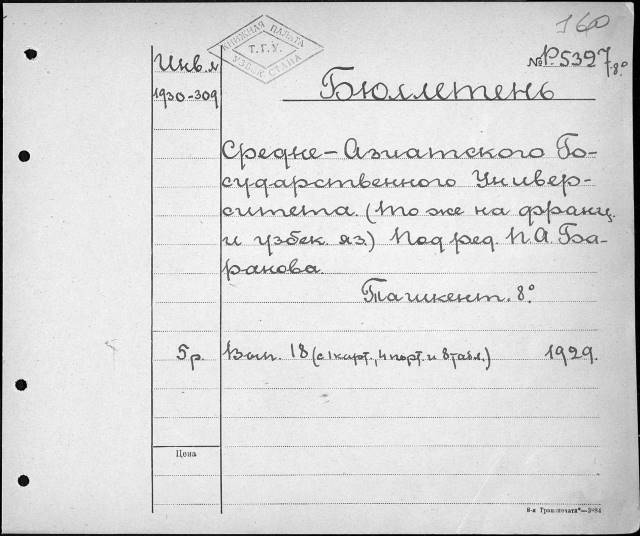 160
КНИЖНАЯ ПАЛАТА
Т.Г.У.
УЗБЕКИСТАНА
Инв. №
1930-309
№ P-5397/8°
Бюллетень
Средне-Азиатского Го-
сударственного Универ-
ситета. (То же на франц.
и узбек. яз.) Под ред. П. А. Ба-
ранова.
Ташкент. 8°.
5 р.
Вып. 18 (с 1 карт., 4 порт. и 8 табл.) 1929.
Цена
8-я Транспечати"—3984